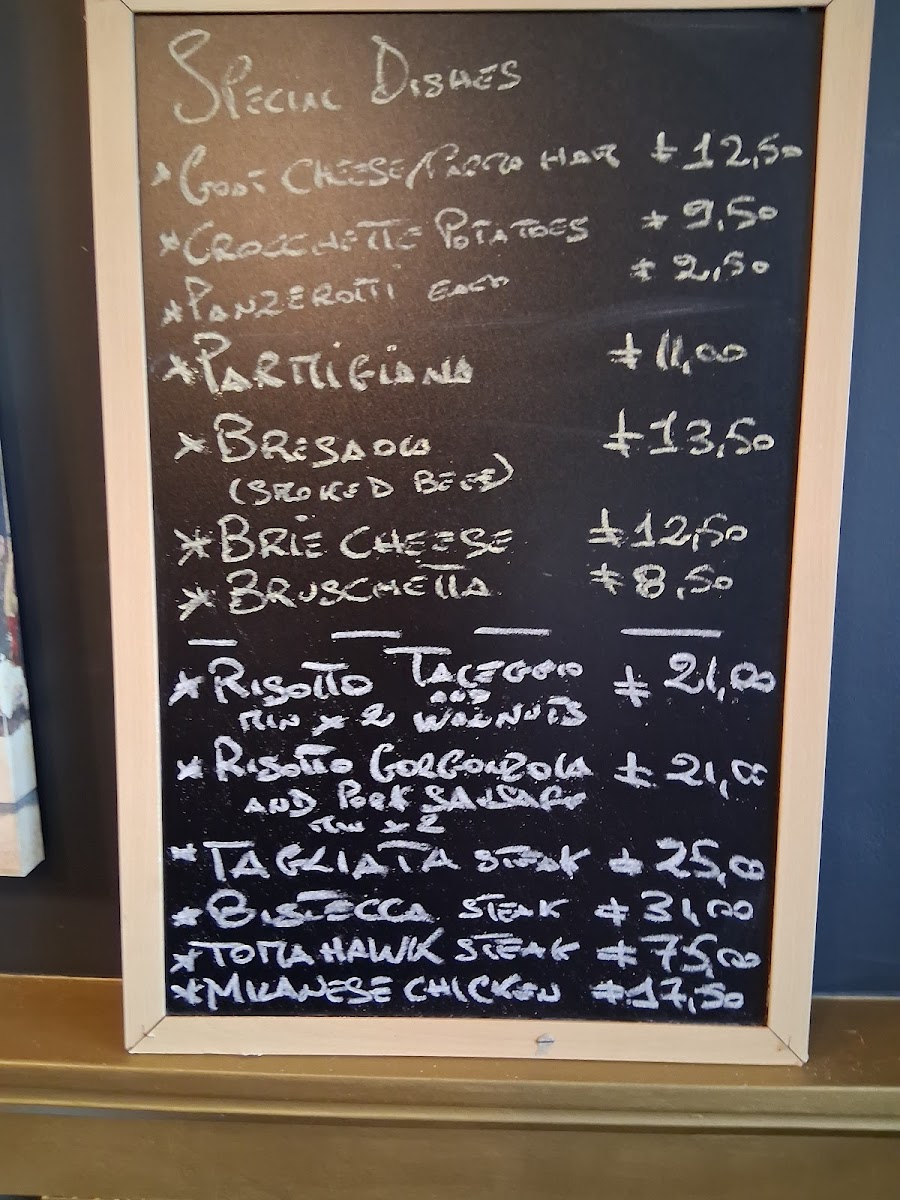 SPECIAL DISHES
* GOAT CHEESE/PARMA HAM £12,50
* CROCCHETTE POTATOES £9,50
* PANZEROTTI EACH £2,50
* PARMIGIANA £11,00
* BRESAOLA £13,50
(SMOKED BEEF)
* BRIE CHEESE £12,50
* BRUSCHETTA £8,50
* RISOTTO TALEGGIO £21,00
AND
MIN x 2 WALNUTS
* RISOTTO GORGONZOLA £21,00
AND PORK SAUSAGE
MIN x 2
* TAGLIATA STEAK £25,00
* BISTECCA STEAK £31,00
* TOMAHAWK STEAK £75,00
* MILANESE CHICKEN £17,50